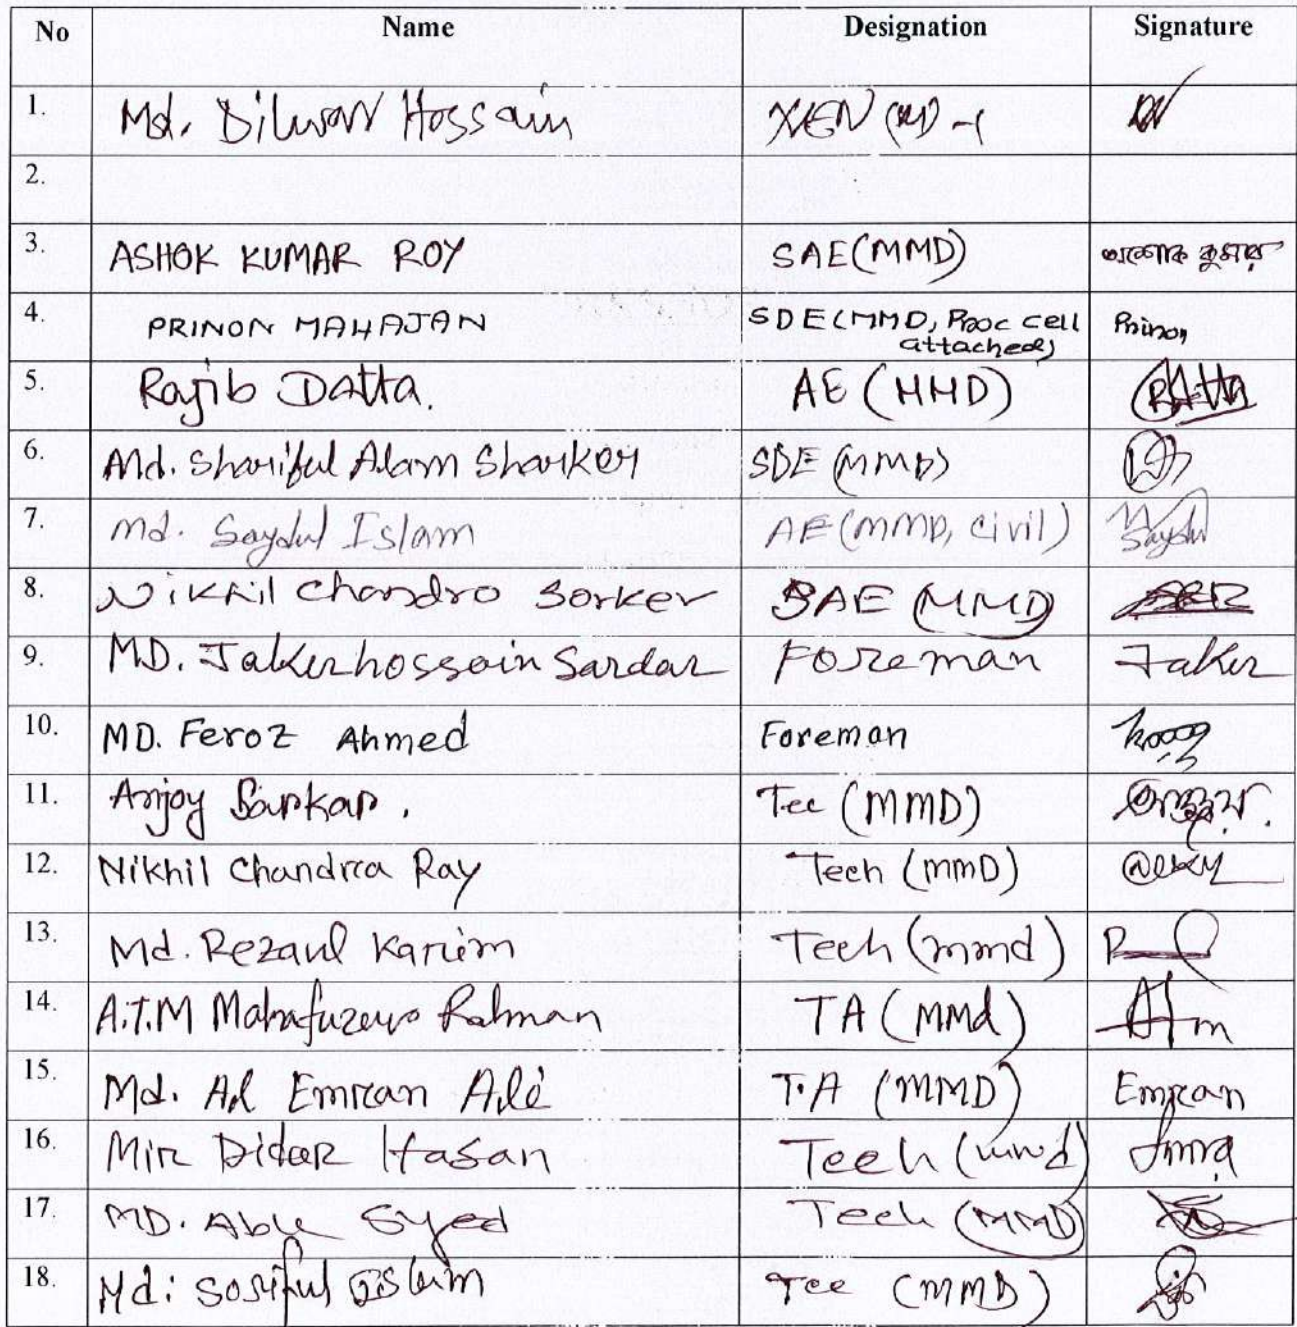 No Name Designation Signature
1. Md. Dilwar Hossain XEN
2.
3. ASHOK KUMAR ROY SAE (MMD) অশোক কুমার
4. PRINON MAHAJAN SDE (MMD, Proc cell attached) Prinon
5. Rajib Datta. AE (MMD) RDatta
6. Md. Shariful Alam Sharker SDE (MMD)
7. Md. Saydul Islam AE (MMD, Civil) Saydul
8. Nikhil Chandro Sorker SAE (MMD)
9. MD. Jakerhossain Sardar Foreman Jaker
10. MD. Feroz Ahmed Foreman
11. Anjoy Sarkar. Tec (MMD)
12. Nikhil Chandra Ray Tech (MMD)
13. Md. Rezaul Karim Tech (mmd)
14. A.T.M Rahman TA (MMd) Atm
15. Md. Al Emran Ali T.A (MMD) Emran
16. Mir Didar Hasan Tech (mmd)
17. MD. Abu Syed Tech (MMD)
18. Md: Soriful Islam Tec (MMD)